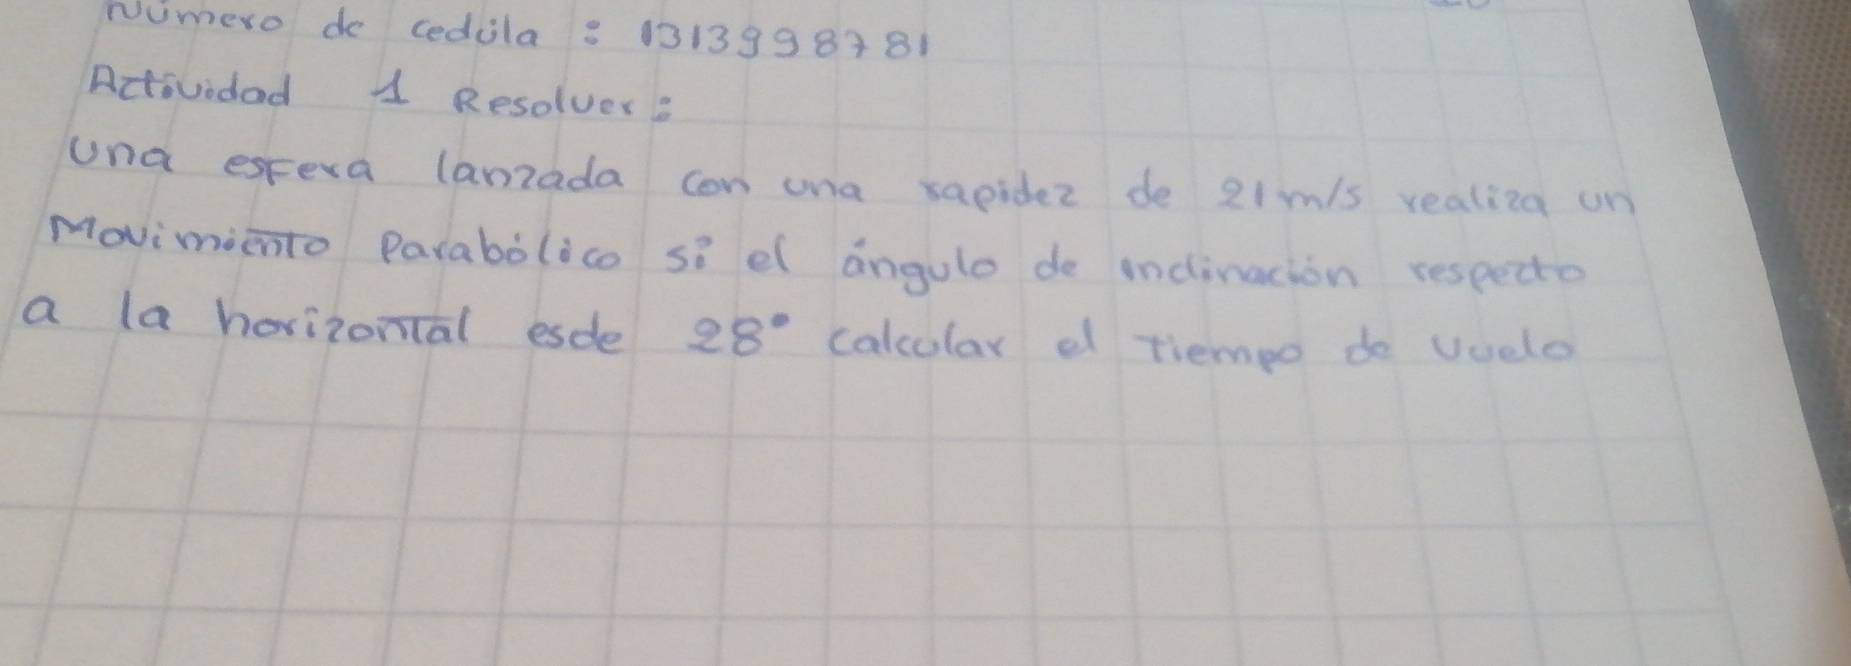 Número de cedúla : 1313998781
Actividad 1 Resolver :
Una esfera lanzada con una rapidez de 21 m/s realiza un
Movimiento Parabólico si el ángulo de inclinación respecto
a la horizontal esde 28° calcular el tiempo de vuelo